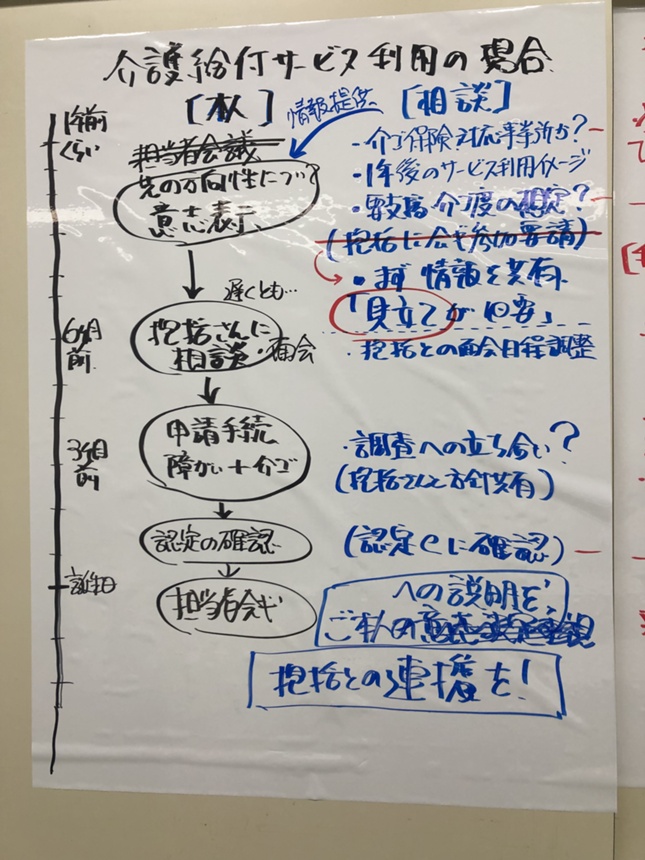 介護給付サービス利用の場合
[本人]
情報提供
[相談]
1年前
くらい
担当者会議
先の方向性について
意志表示
・介ゴ保険対応事業所か?
・1年後のサービス利用イメージ
・要支援・介護の想定?
(抱括に会ギ参加要請)
・まず情報を共有
「見立てが必要」
遅くとも…
6ヶ月
前
抱括さんに
相談・面会
・抱括との面会日程調整
3ヶ月
前
申請手続
障がい+介ゴ
・調査への立ち合い?
(抱括さんと方針共有)
認定の確認
(認定Cに確認)
誕生日
担当者会ギ
への説明を、
ご本人の
抱括との連携を!